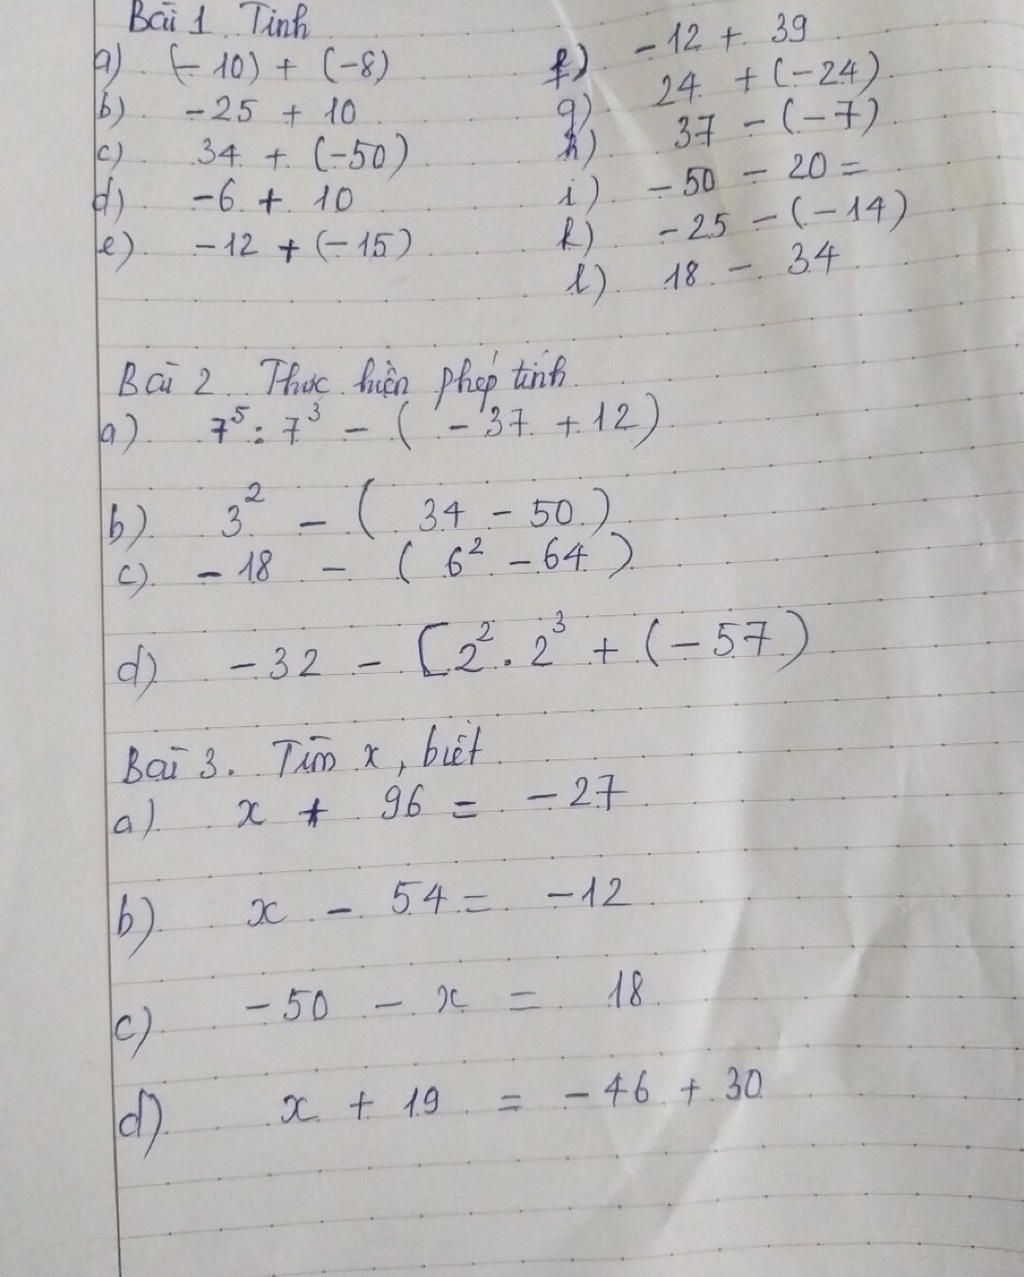 Bài 1. Tính
a) (-10) + (-8)
b) -25 + 10
c) 34 + (-50)
d) -6 + 10
e) -12 + (-15)
f) -12 + 39
g) 24 + (-24)
h) 37 - (-7)
i) -50 - 20 =
k) -25 - (-14)
l) 18 - 34
Bài 2. Thực hiện phép tính
a) 7⁵ : 7³ - ( -37 + 12)
b) 3² - ( 34 - 50 )
c) -18 - ( 6² - 64 )
d) -32 - [2² . 2³ + (-57)
Bài 3. Tìm x, biết
a) x + 96 = -27
b) x - 54 = -12
c) -50 - x = 18
d) x + 19 = -46 + 30